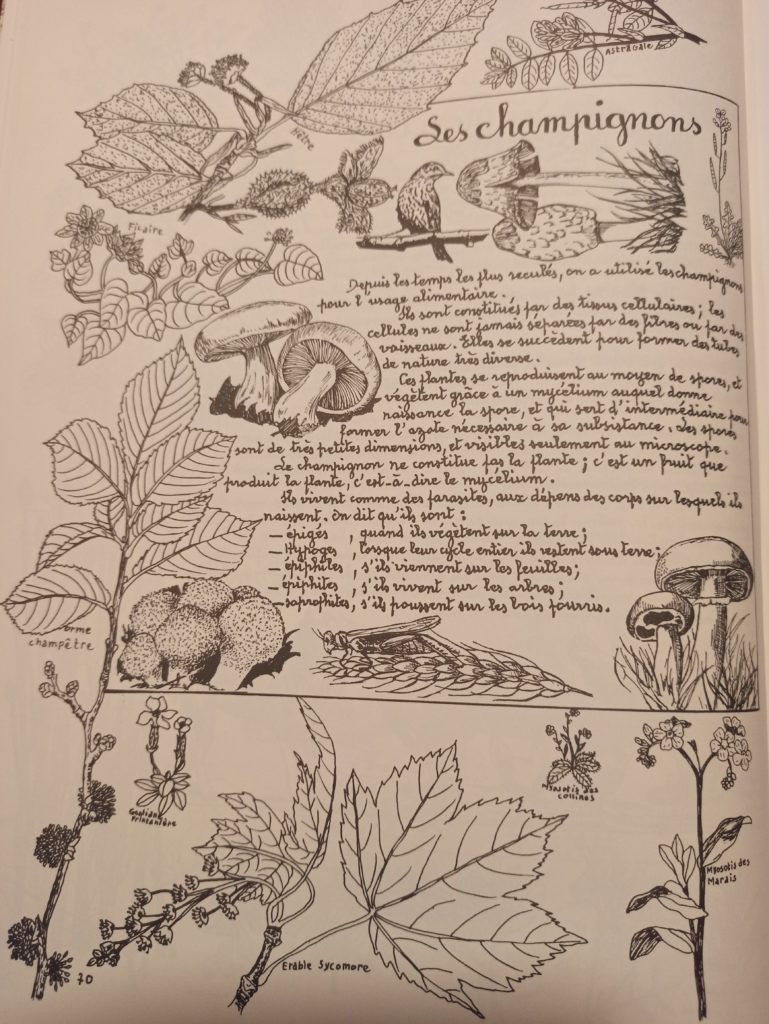 Astragale
Les champignons
hêtre
Ficaire
Depuis les temps les plus reculés, on a utilisé les champignons
pour l'usage alimentaire.
Ils sont constitués par des tissus cellulaires ; les
cellules ne sont jamais séparées par des fibres ou par des
vaisseaux. Elles se succèdent pour former des tubes
de nature très diverse.
Ces plantes se reproduisent au moyen de spores, et
végètent grâce à un mycélium auquel donne
naissance la spore, et qui sert d'intermédiaire pour
former l'azote nécessaire à sa subsistance. Les spores
sont de très petites dimensions, et visibles seulement au microscope.
Le champignon ne constitue pas la plante ; c'est un fruit que
produit la plante, c'est-à-dire le mycélium.
Ils vivent comme des parasites, aux dépens des corps sur lesquels ils
naissent. On dit qu'ils sont :
_ épigés , quand ils végètent sur la terre ;
_ Hypogés , lorsque leur cycle entier ils restent sous terre ;
_ épiphiles , s'ils viennent sur les feuilles ;
_ épiphites , s'ils vivent sur les arbres ;
_ saprophites, s'ils poussent sur les bois pourris.
orme
champêtre
Gentiane
Printanière
Myosotis des
collines
Myosotis des
Marais
Erable Sycomore
70